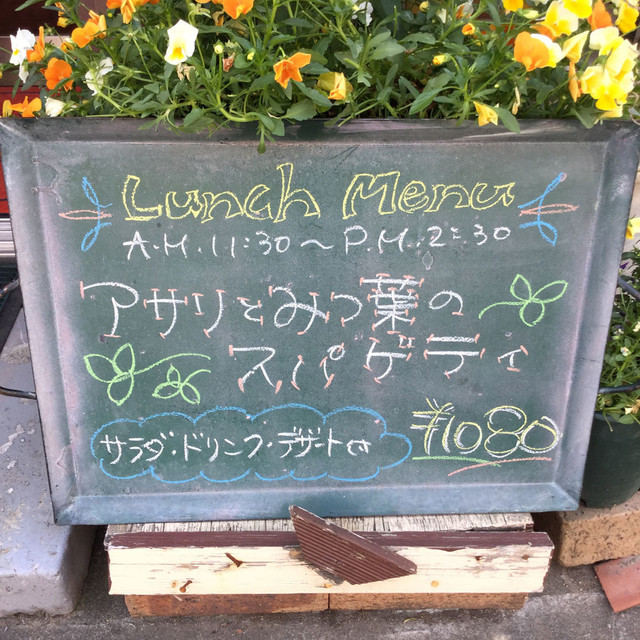 Lunch Menu
A.M.11:30～P.M.2:30
アサリとみつ葉の
スパゲティ
サラダ・ドリンク・デザート付
¥1080